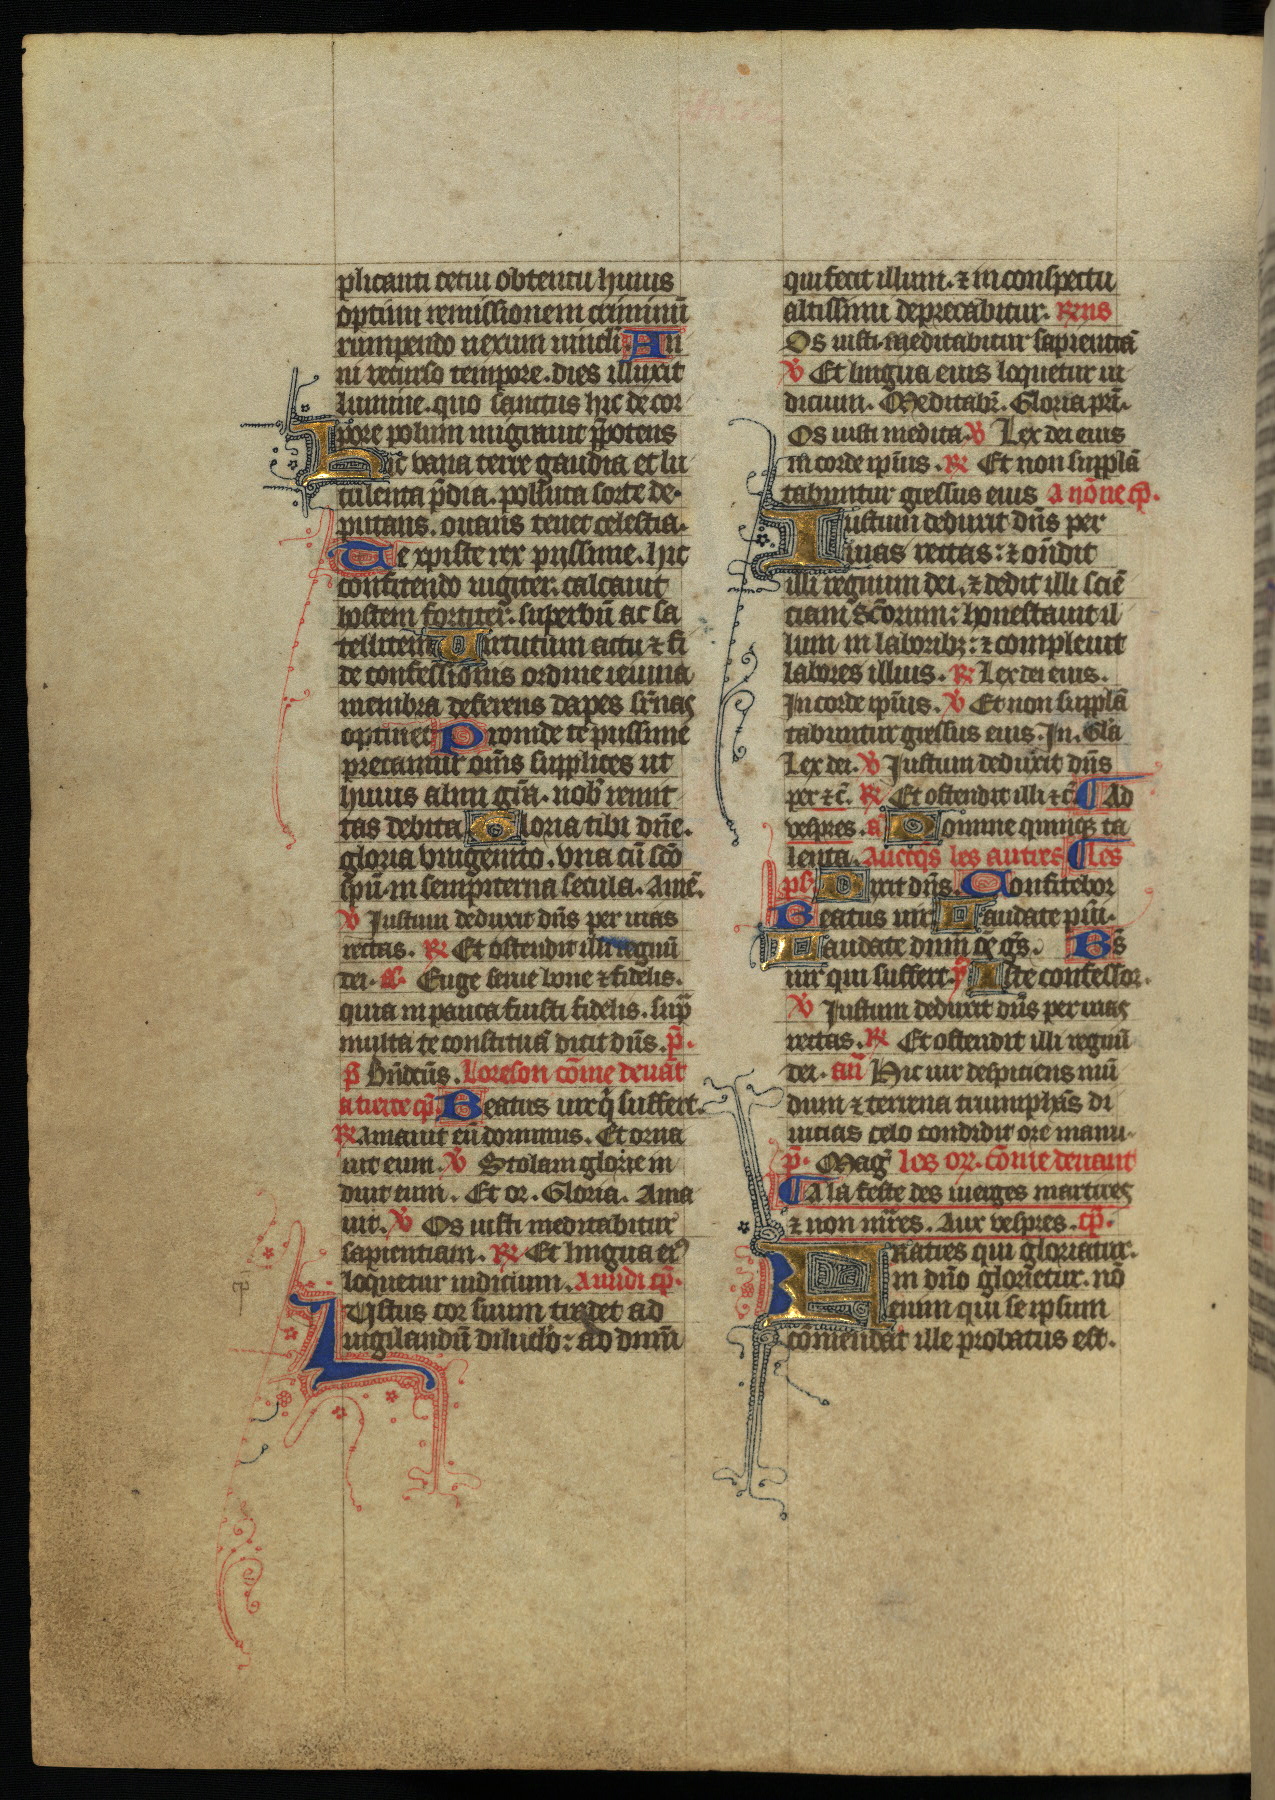 plicanti cetui obtentu huius
optimi remissionem criminū
rumpendo nexum uincli An
ni recurso tempore. dies illuxit
lumine. quo sanctus hic de cor
pore polum migrauit p̄potens
Hic vana terre gaudia et lu
culenta p̄dia. polluta sorte de
putans. ouans tenet celestia.
Te xp̄iste rex piissime. hic
confitendo iugiter. calcauit
hostem fortiter. superbū ac sa
tellitem Uirtutum actu ⁊ fi
de confessionis ordine ieiuna
membra deferens dapes sr̄nas
optinet Proinde te piissime
precamur om̄s supplices ut
huius almi gr̄a. nob̄ remit
tas debita Gloria tibi dn̄e.
gloria vnigenito. vna cū sc̄o
sp̄u. in sempiterna secula. Amē.
℣ Justum deduxit dn̄s per uias
rectas. ℟ Et ostendit illi regnū
dei. a. Euge serue bone ⁊ fidelis.
quia in pauca fuisti fidelis. sup̄
multa te constituā dicit dn̄s. p̄.
p̄ Bn̄dictus. Loreson cōme deuāt
a tierce cp̄. Beatus uir q̄ suffert.
℟ Amauit eū dominus. Et orna
uit eum. ℣ Stolam glorie in
duit eum. Et or. Gloria. Ama
uit. ℣ Os iusti meditabitur
sapientiam. ℟ Et lingua ei⁹
loquetur iudicium. A midi cp̄.
Justus cor suum tradet ad
uigilandū diluclō: ad dnm̄
qui fecit illum. ⁊ in conspectu
altissimi deprecabitur. Rens
Os iusti meditabitur sapientiā
℣ Et lingua eius loquetur iu
dicium. Meditabr̄. Gloria pr̄i.
Os iusti medita. ℣ Lex dei eius
in corde ipsius. ℟ Et non supplā
tabuntur gressus eius A nōne cp̄.
Iustum deduxit dn̄s per
uias rectas: ⁊ on̄dit
illi regnum dei, ⁊ dedit illi sciē
ciam sc̄orum: honestauit il
lum in laborib⁊: ⁊ compleuit
labores illius. ℟ Lex dei eius.
In corde ipsius. ℣ Et non supplā
tabuntur gressus eius. In. Gl̄a
Lex dei. ℣ Justum deduxit dn̄s
per ⁊c̄. ℟ Et ostendit illi ⁊c̄. ¶ Ad
vespres. a Domine quinq⁊ ta
lenta. Auecqs les autres ¶ Les
ps. Dixit dn̄s. Confitebor
Beatus uir Laudate pūi.
Laudate dnm̄ oē gēs. Bs̄
uir qui suffert. ỹ Iste confessor.
℣ Justum deduxit dn̄s per uias
rectas. ℟ Et ostendit illi regnū
dei. an̄ Hic uir despiciens mū
dum ⁊ terrena triumphās di
uicias celo condidit ore manu.
p̄. Maḡ les or. cōme deuant
¶ A la feste des uierges martires
⁊ non mr̄es. Aux vespres. cp̄.
Fraties qui gloriatur.
in dn̄o glorietur. nō
eum qui se ipsum
cōmendat ille probatus est.